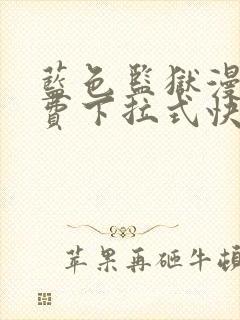 藍色監獄漫
費下拉式快
苹果再砸牛頓